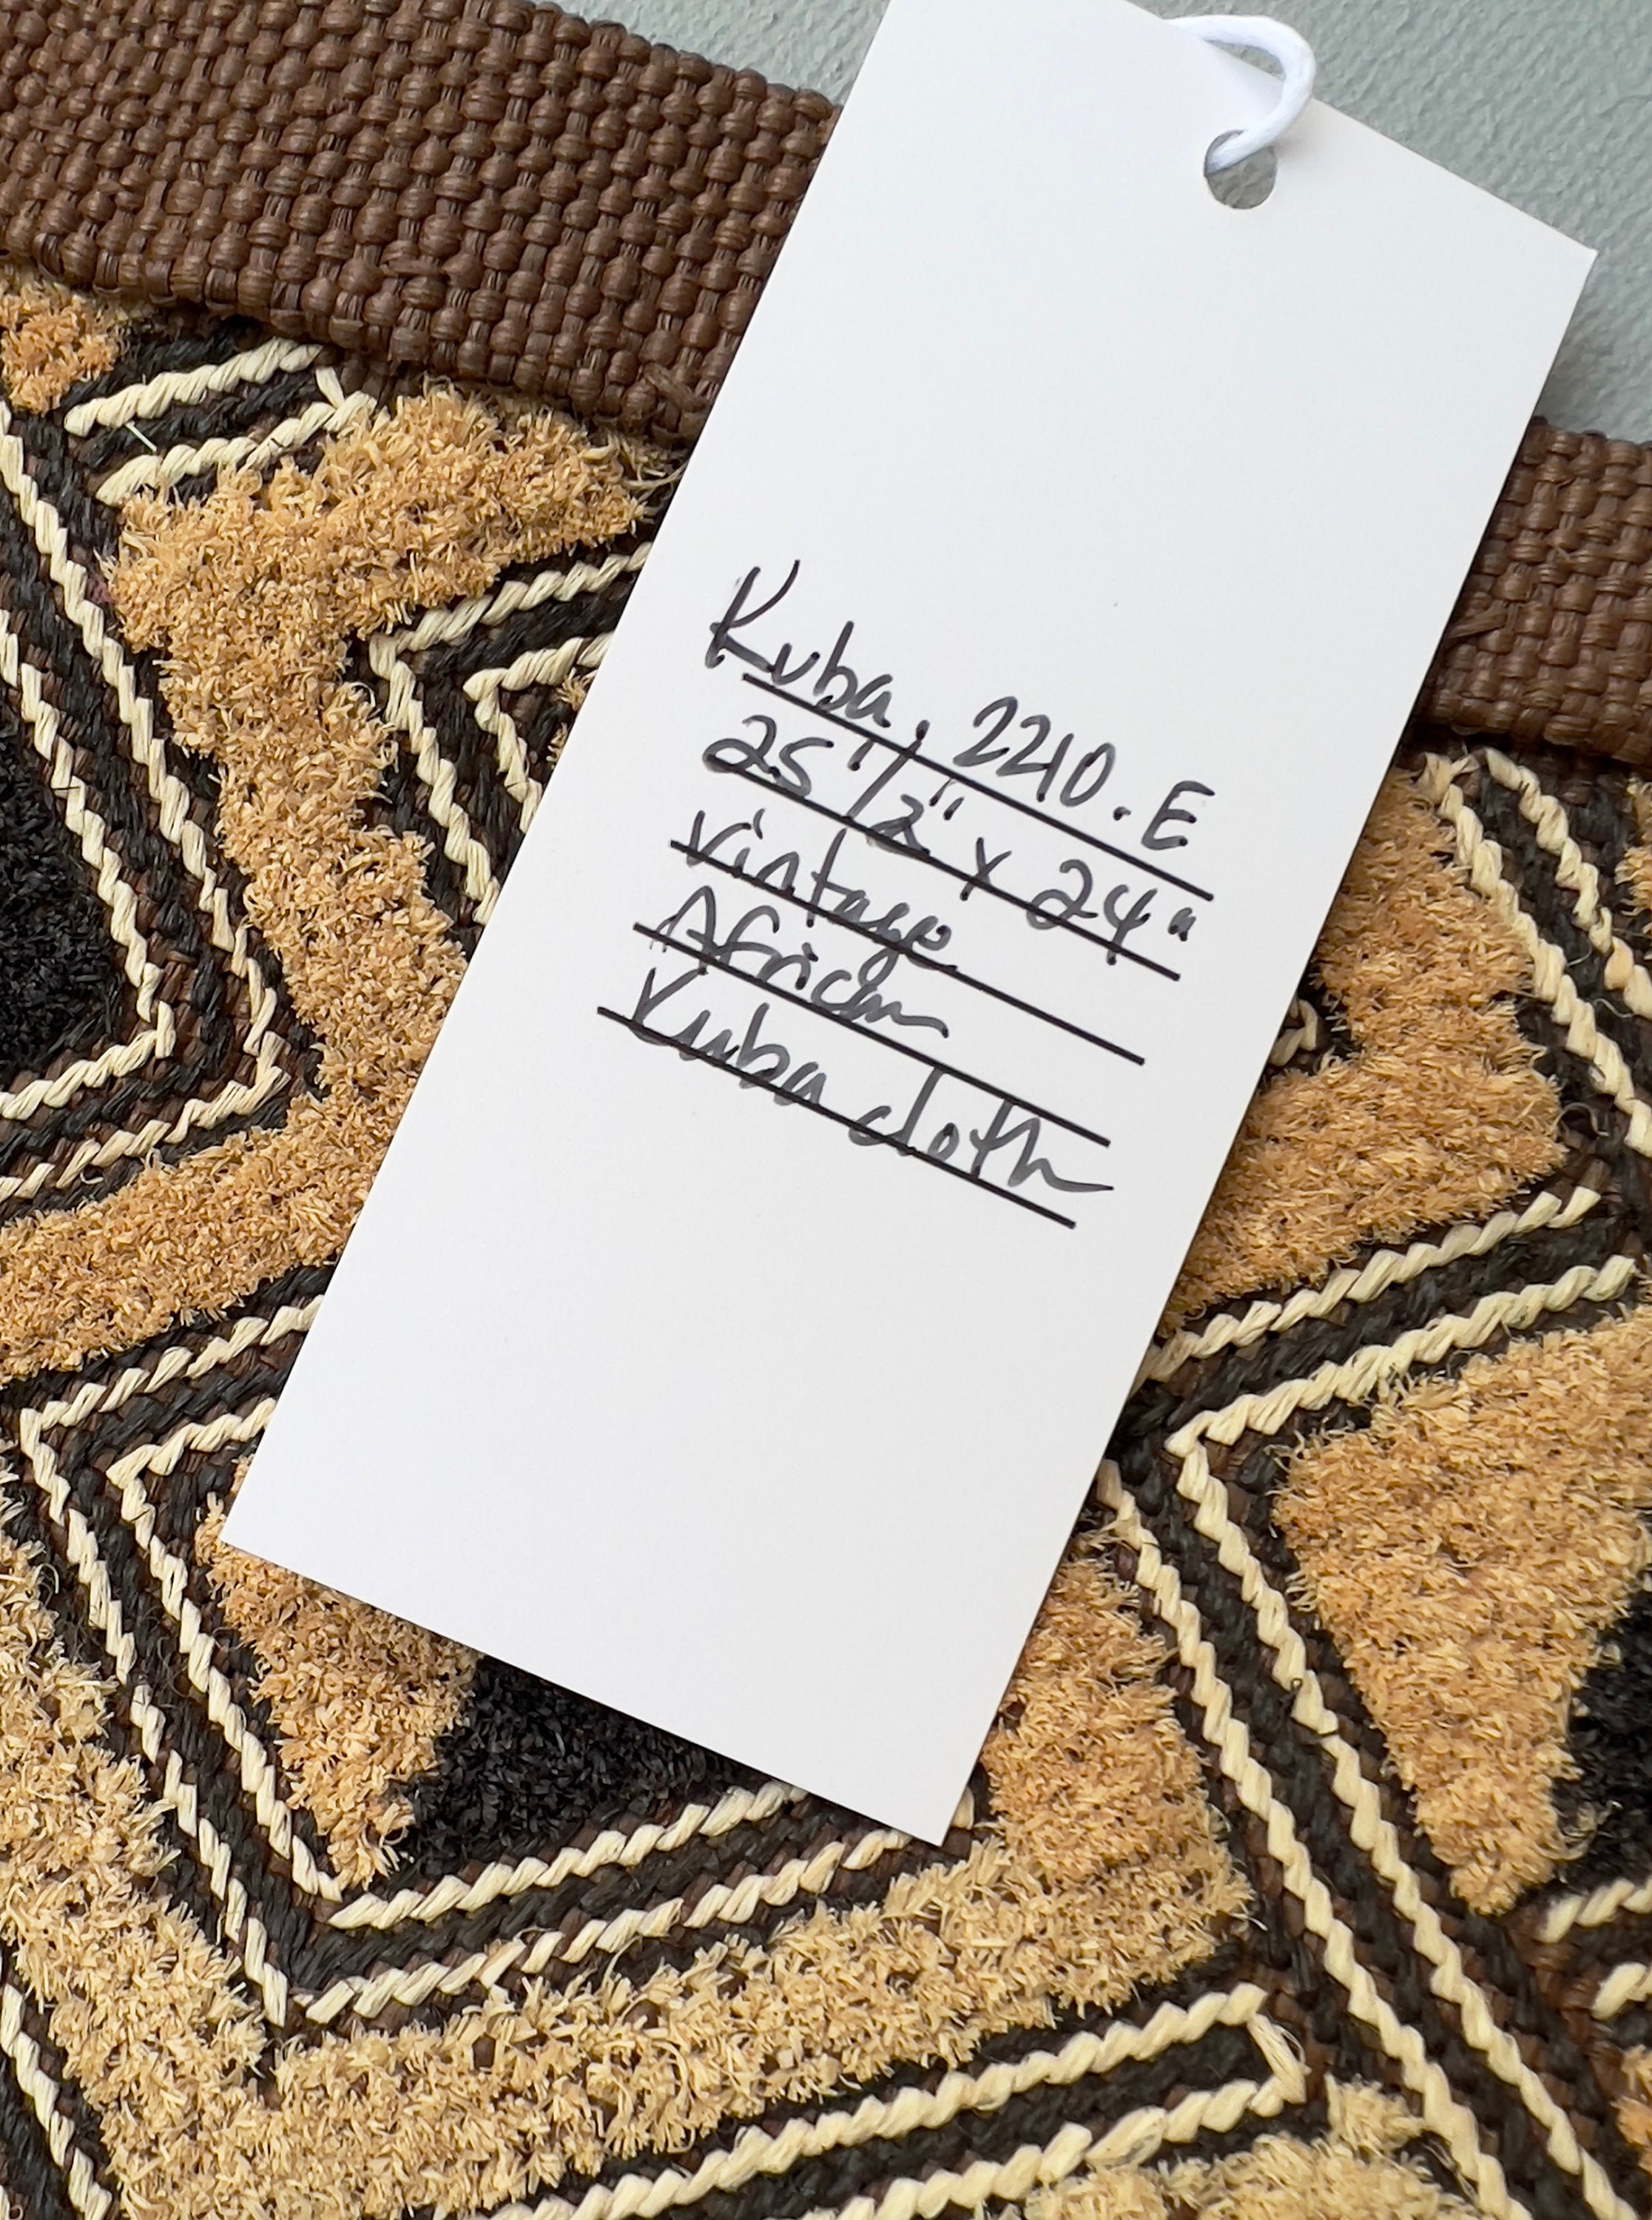 Kuba. 2210.E
25 1/2" x 24"
vintage
African
Kuba cloth